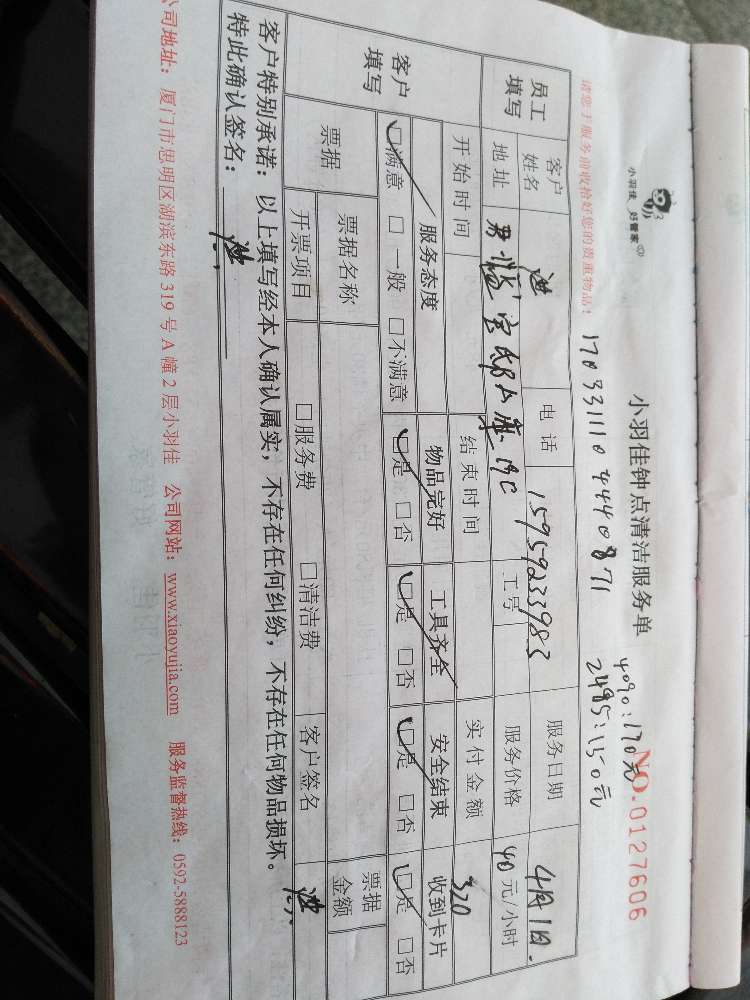 小羽佳 好管家
小羽佳钟点清洁服务单
NO.0127606
4090:170元
2495:150元
请您于服务前收拾好您的贵重物品!
1703311104440871
员工填写
客户姓名 洪 电话 15959233983 服务日期 4月1日.
地址 君临宝邸 19C 工号 服务价格 40元/小时
开始时间 结束时间 实付金额 320
客户填写
服务态度 物品完好 工具齐全 安全结束 收到卡片
☑满意 □一般 □不满意 ☑是 □否 ☑是 □否 ☑是 □否 ☑是 □否
票据 票据名称 票据金额
开票项目 □服务费 □清洁费 客户签名 洪
客户特别承诺:以上填写经本人确认属实,不存在任何纠纷,不存在任何物品损坏。
特此确认签名: 洪
公司地址:厦门市思明区湖滨东路319号A幢2层小羽佳 公司网站:www.xiaoyujia.com 服务监督热线:0592-5888123